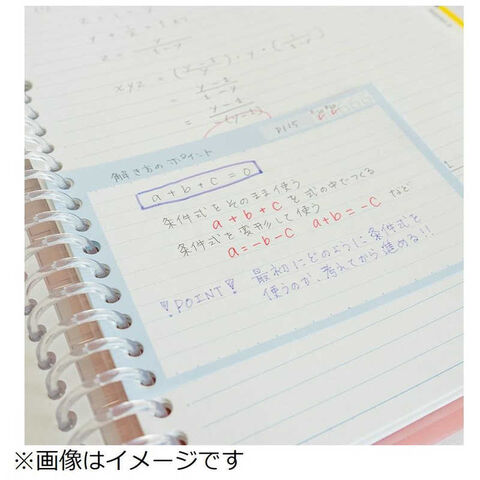 xyz = (y-1/y)・y・(1/1-y)
= y-1/1-y
= y-1/-(y-1)
P115
解き方のポイント
a+b+c=0
条件式をそのまま使う
a+b+c を式の中でつくる
条件式を変形して使う
a=-b-c a+b=-c など
!POINT! 最初にどのように条件式を
使うのか、考えてから進める!!
※画像はイメージです